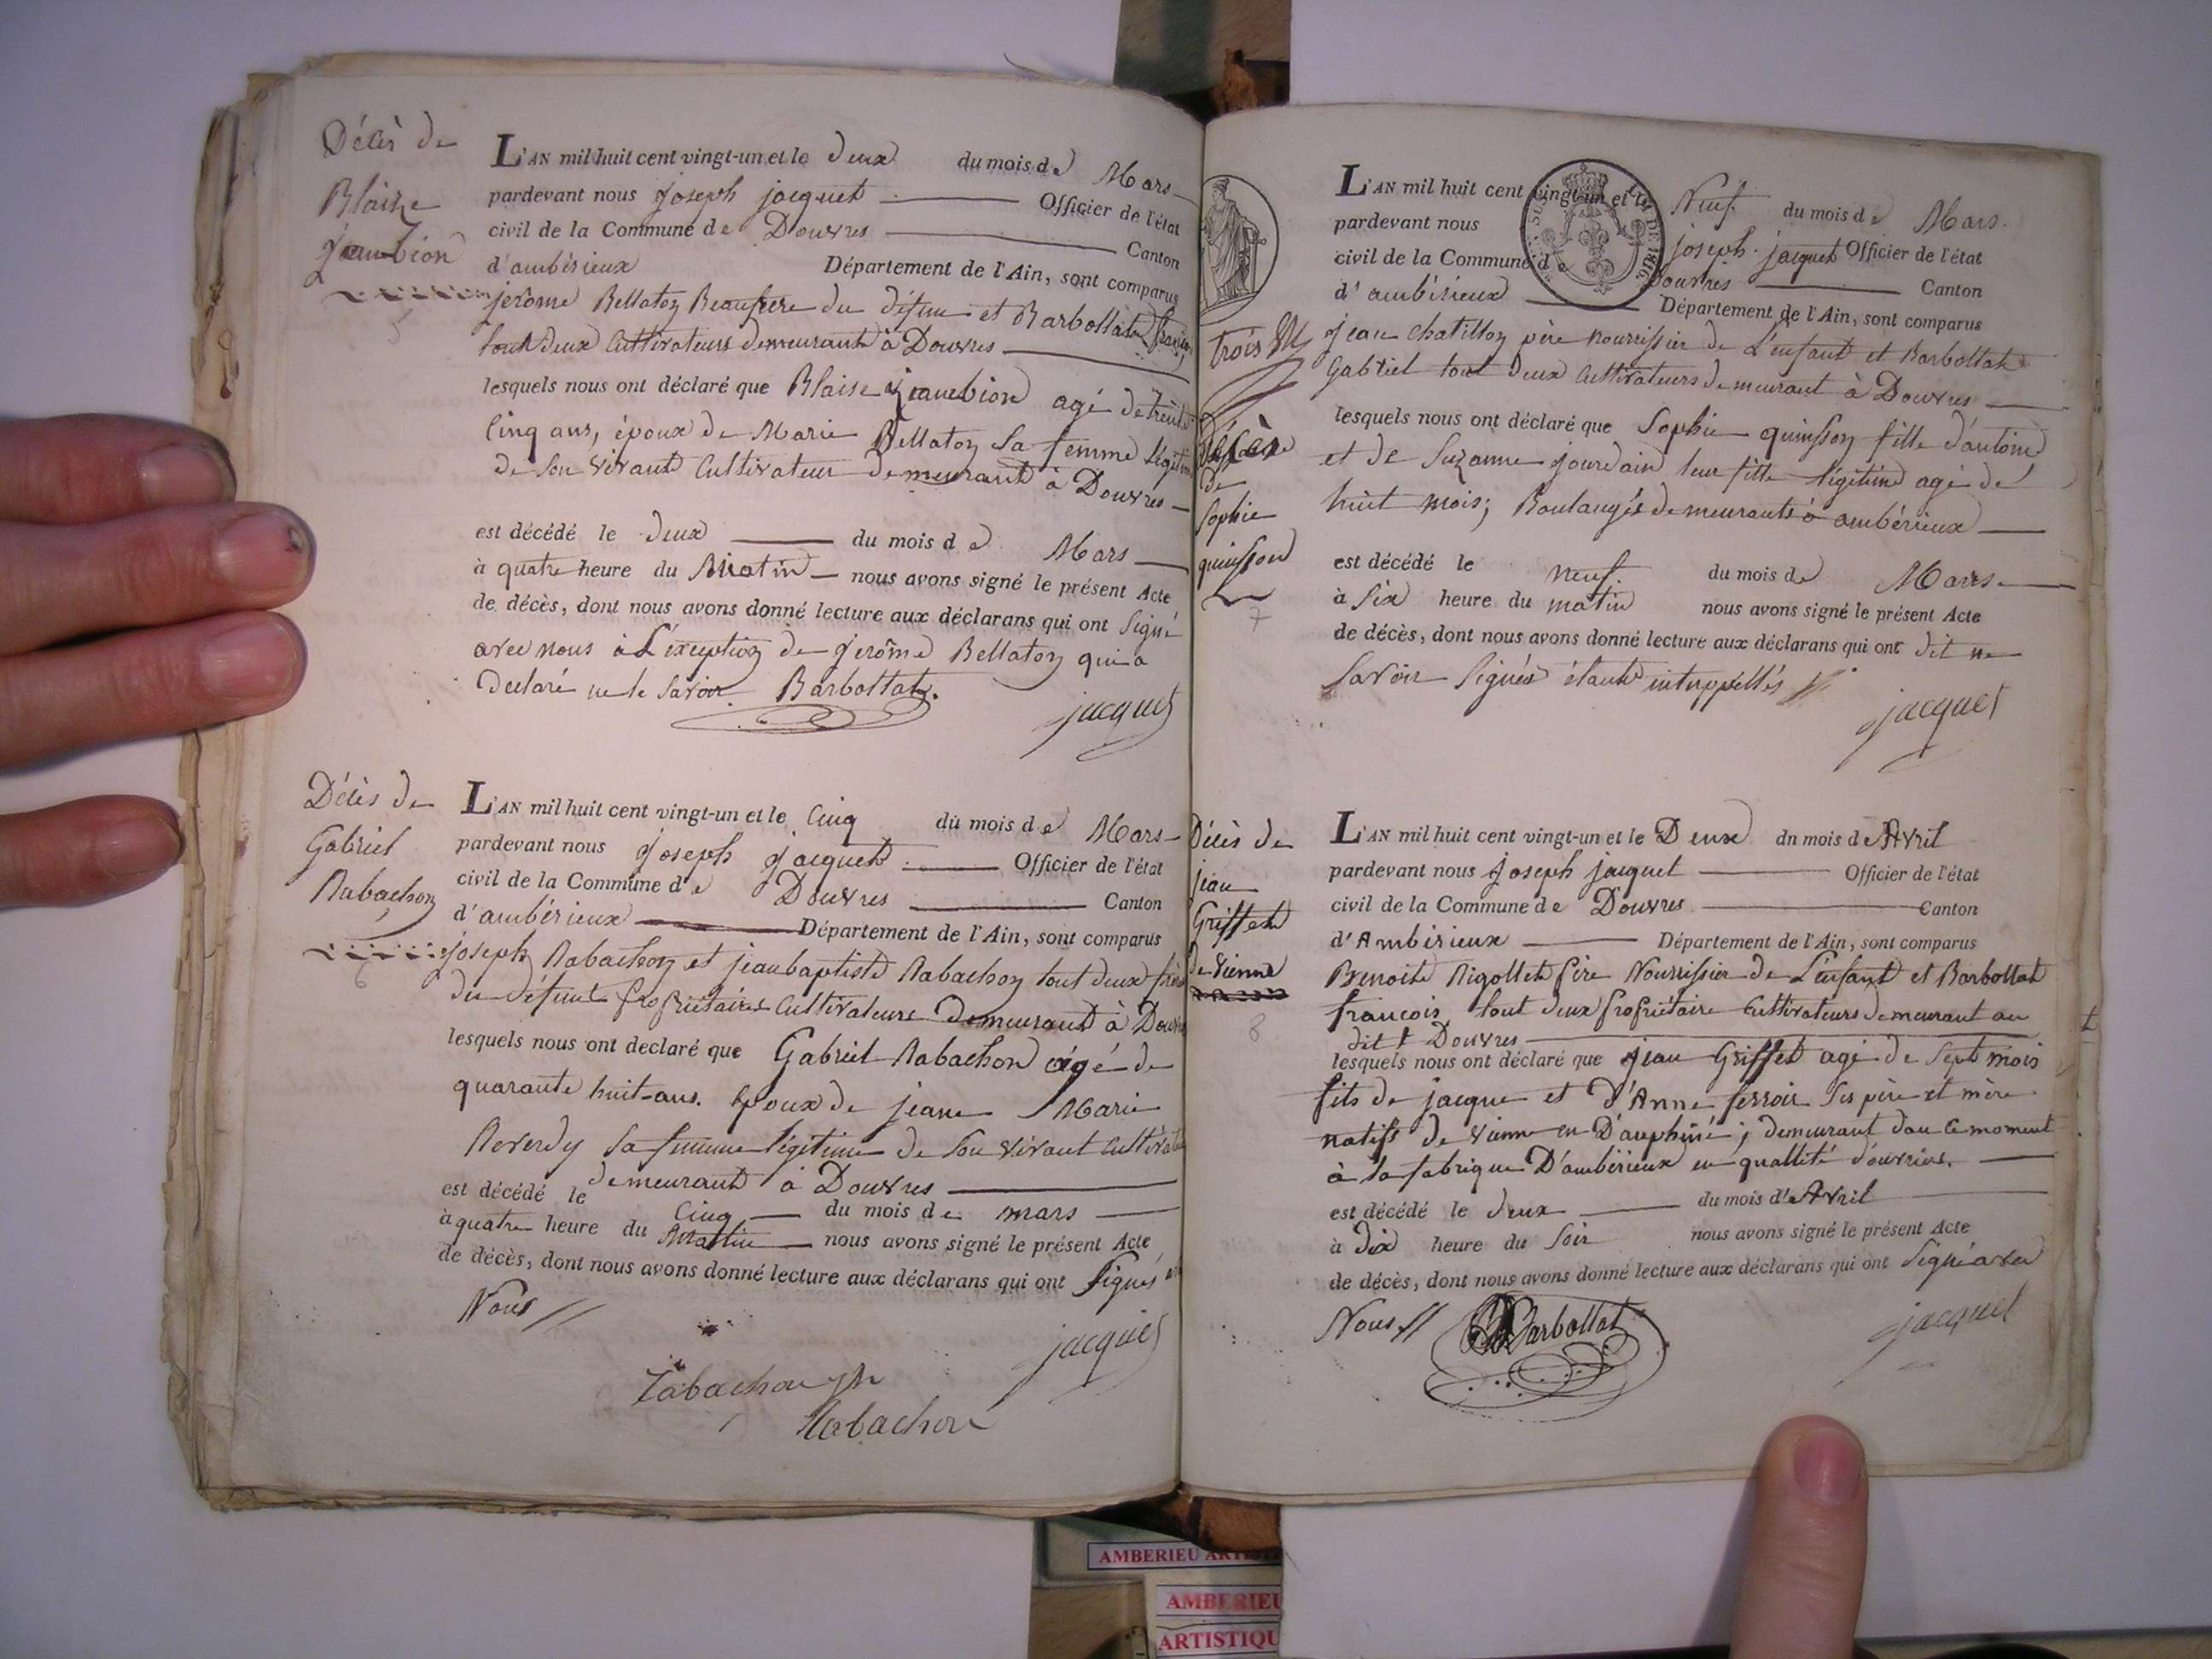 Décès de
Blaise
Jeanbion
5
L'AN mil huit cent vingt-un et le deux du mois de Mars
pardevant nous Joseph jacquet Officier de l'état
civil de la Commune de Douvres Canton
d'ambérieux Département de l'Ain, sont comparus
jerôme Bellaton Beaufrere du défunt et Barbollat françois
tout deux Cultivateurs demeurant à Douvres
lesquels nous ont déclaré que Blaise jeanbion agé de trente
Cinq ans, époux de Marie Bellaton Sa femme légitime
de Son vivant Cultivateur demeurant à Douvres
est décédé le deux du mois de Mars
à quatre heure du Matin nous avons signé le présent Acte
de décès, dont nous avons donné lecture aux déclarans qui ont Signé
avec nous à L'éxception de jerôme Bellaton qui a
declaré ne le Savoir Barbollat.
jacquet
Décès de
Gabriel
Rabachon
6
L'AN mil huit cent vingt-un et le Cinq du mois de Mars
pardevant nous Joseph Jacquet Officier de l'état
civil de la Commune de Douvres Canton
d'ambérieux Département de l'Ain, sont comparus
joseph Rabachon et jeanbaptiste Rabachon tout deux frère
du défunt propriétaires Cultivateurs Demeurant à Douvres
lesquels nous ont declaré que Gabriel Rabachon agé de
quarante huit ans. Epoux de jeane Marie
Reverdy Sa femme légitime de Son vivant Cultivateur
demeurant à Douvres
est décédé le Cinq du mois de mars
à quatre heure du Matin nous avons signé le présent Acte
de décès, dont nous avons donné lecture aux déclarans qui ont Signés
Nous //
jacquet
Rabachon
Rabachon
trois
Décès
de
Sophie
quinsson
7
L'AN mil huit cent vingt-un et le Neuf du mois de Mars.
pardevant nous joseph jacquet Officier de l'état
civil de la Commune de Douvres Canton
d'ambérieux Département de l'Ain, sont comparus
jean chatillon père nourrissier de L'enfant et Barbollat
Gabriel tout deux Cultivateurs demeurant à Douvres
lesquels nous ont déclaré que Sophie quinsson fille d'antoine
et de Suzanne jourdain leur fille légitime agé de
huit mois; Boulangés demeurants à ambérieux
est décédé le neuf. du mois de Mars
à Six heure du matin nous avons signé le présent Acte
de décès, dont nous avons donné lecture aux déclarans qui ont dit ne
Savoir Signés étant interppellés //
jacquet
Décès de
jean
Griffet
de Vienne
8
L'AN mil huit cent vingt-un et le Deux dn mois de Avril
pardevant nous joseph jacquet Officier de l'état
civil de la Commune de Douvres Canton
d'Ambérieux Département de l'Ain, sont comparus
Benoite Rigollet père Nourrissier de L'enfant et Barbollat
francois tout deux propriétaire Cultivateurs demeurant au
dit Douvres
lesquels nous ont déclaré que jean Griffet agé de Sept mois
fils de jacque et D'Anne ferroir Ses père et mère
natifs de Vienne en Dauphiné; demeurant dan Ce moment
à la fabrique D'ambérieux en quallité d'ouvriers.
est décédé le deux du mois d'Avril
à Dix heure du Soir nous avons signé le présent Acte
de décès, dont nous avons donné lecture aux déclarans qui ont Signé avec
Nous //
Barbollat
jacquet
AMBERIEU
AMBERIEU